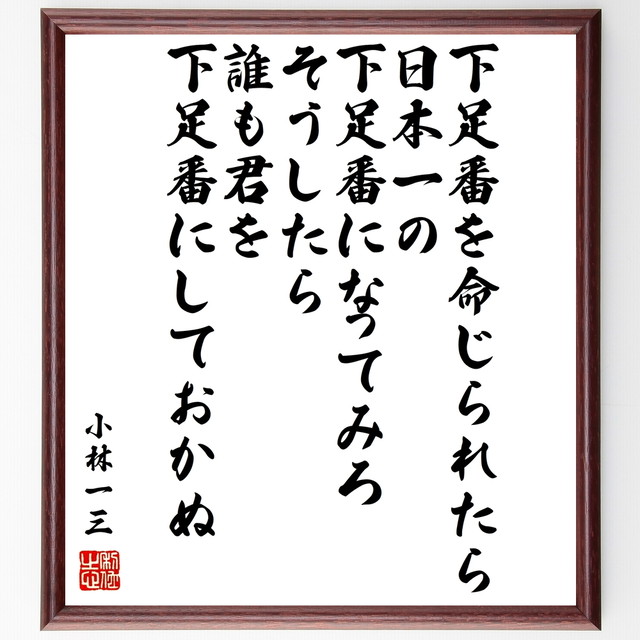 下足番を命じられたら
日本一の
下足番になってみろ
そうしたら
誰も君を
下足番にしておかぬ
小林一三